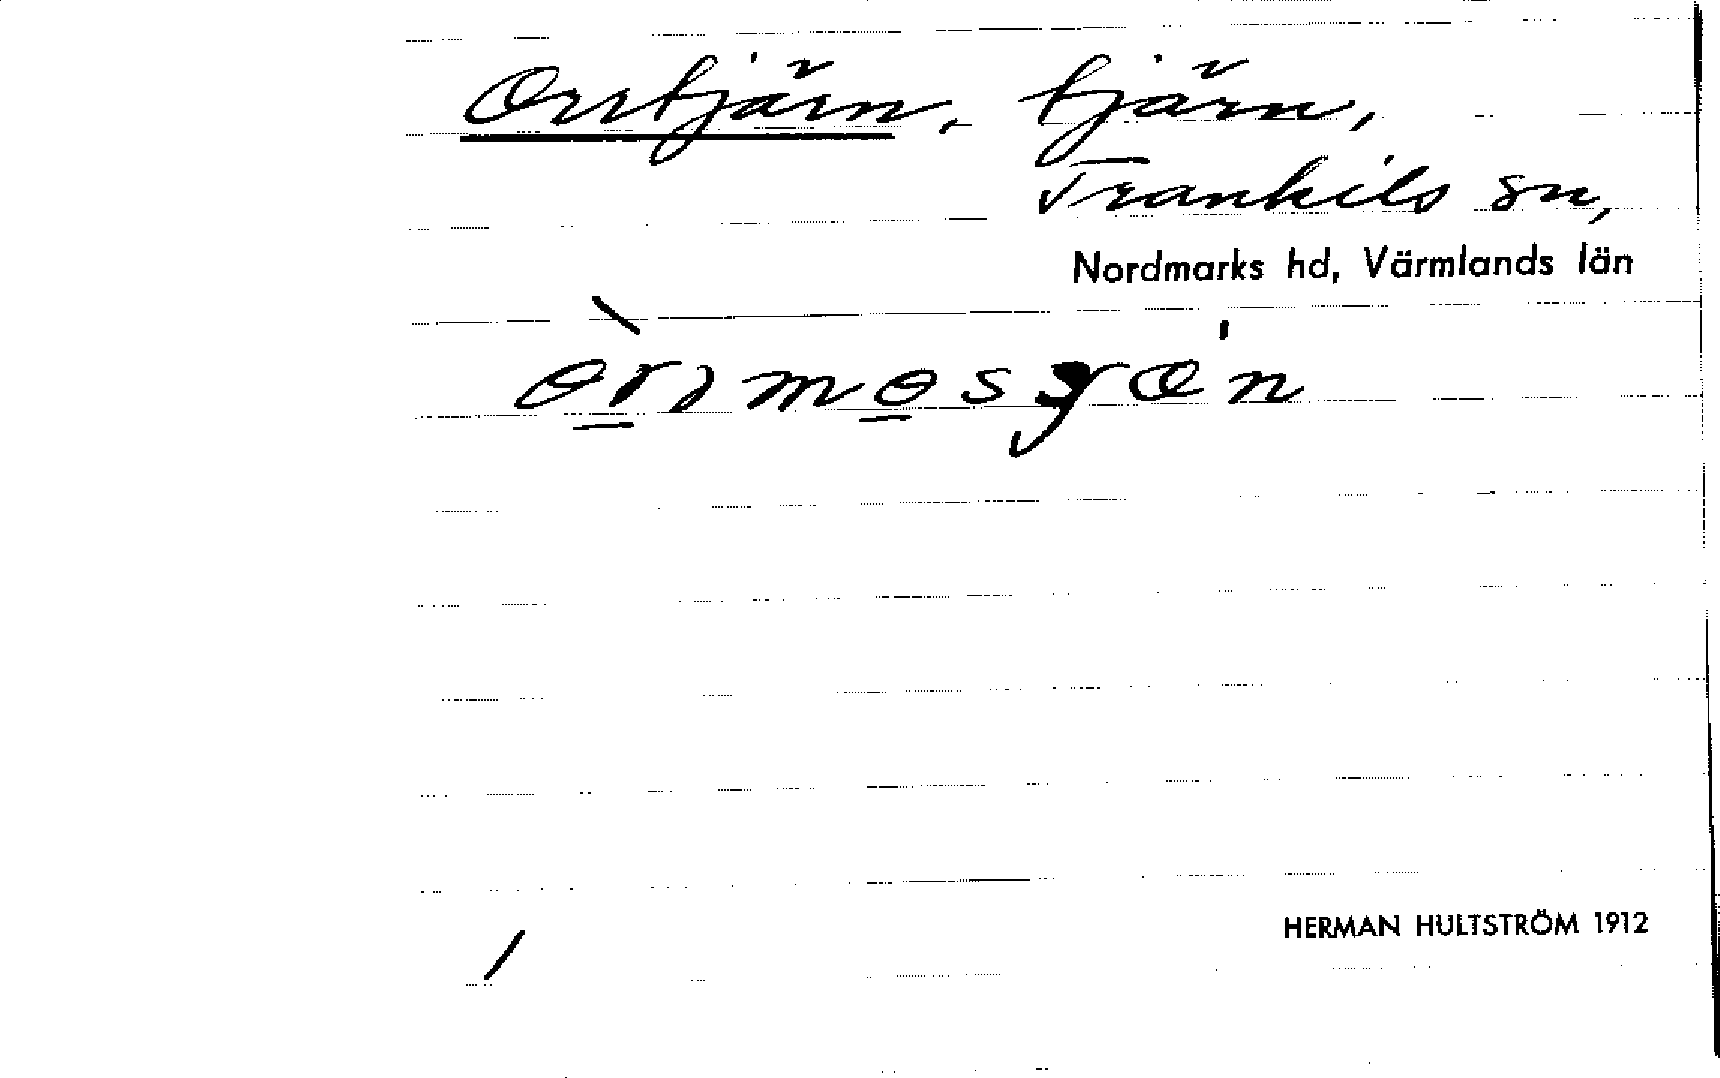 Orrtjärn, tjärn,
Trankils sn,
Nordmarks hd, Värmlands län
HERMAN HULTSTRÖM 1912